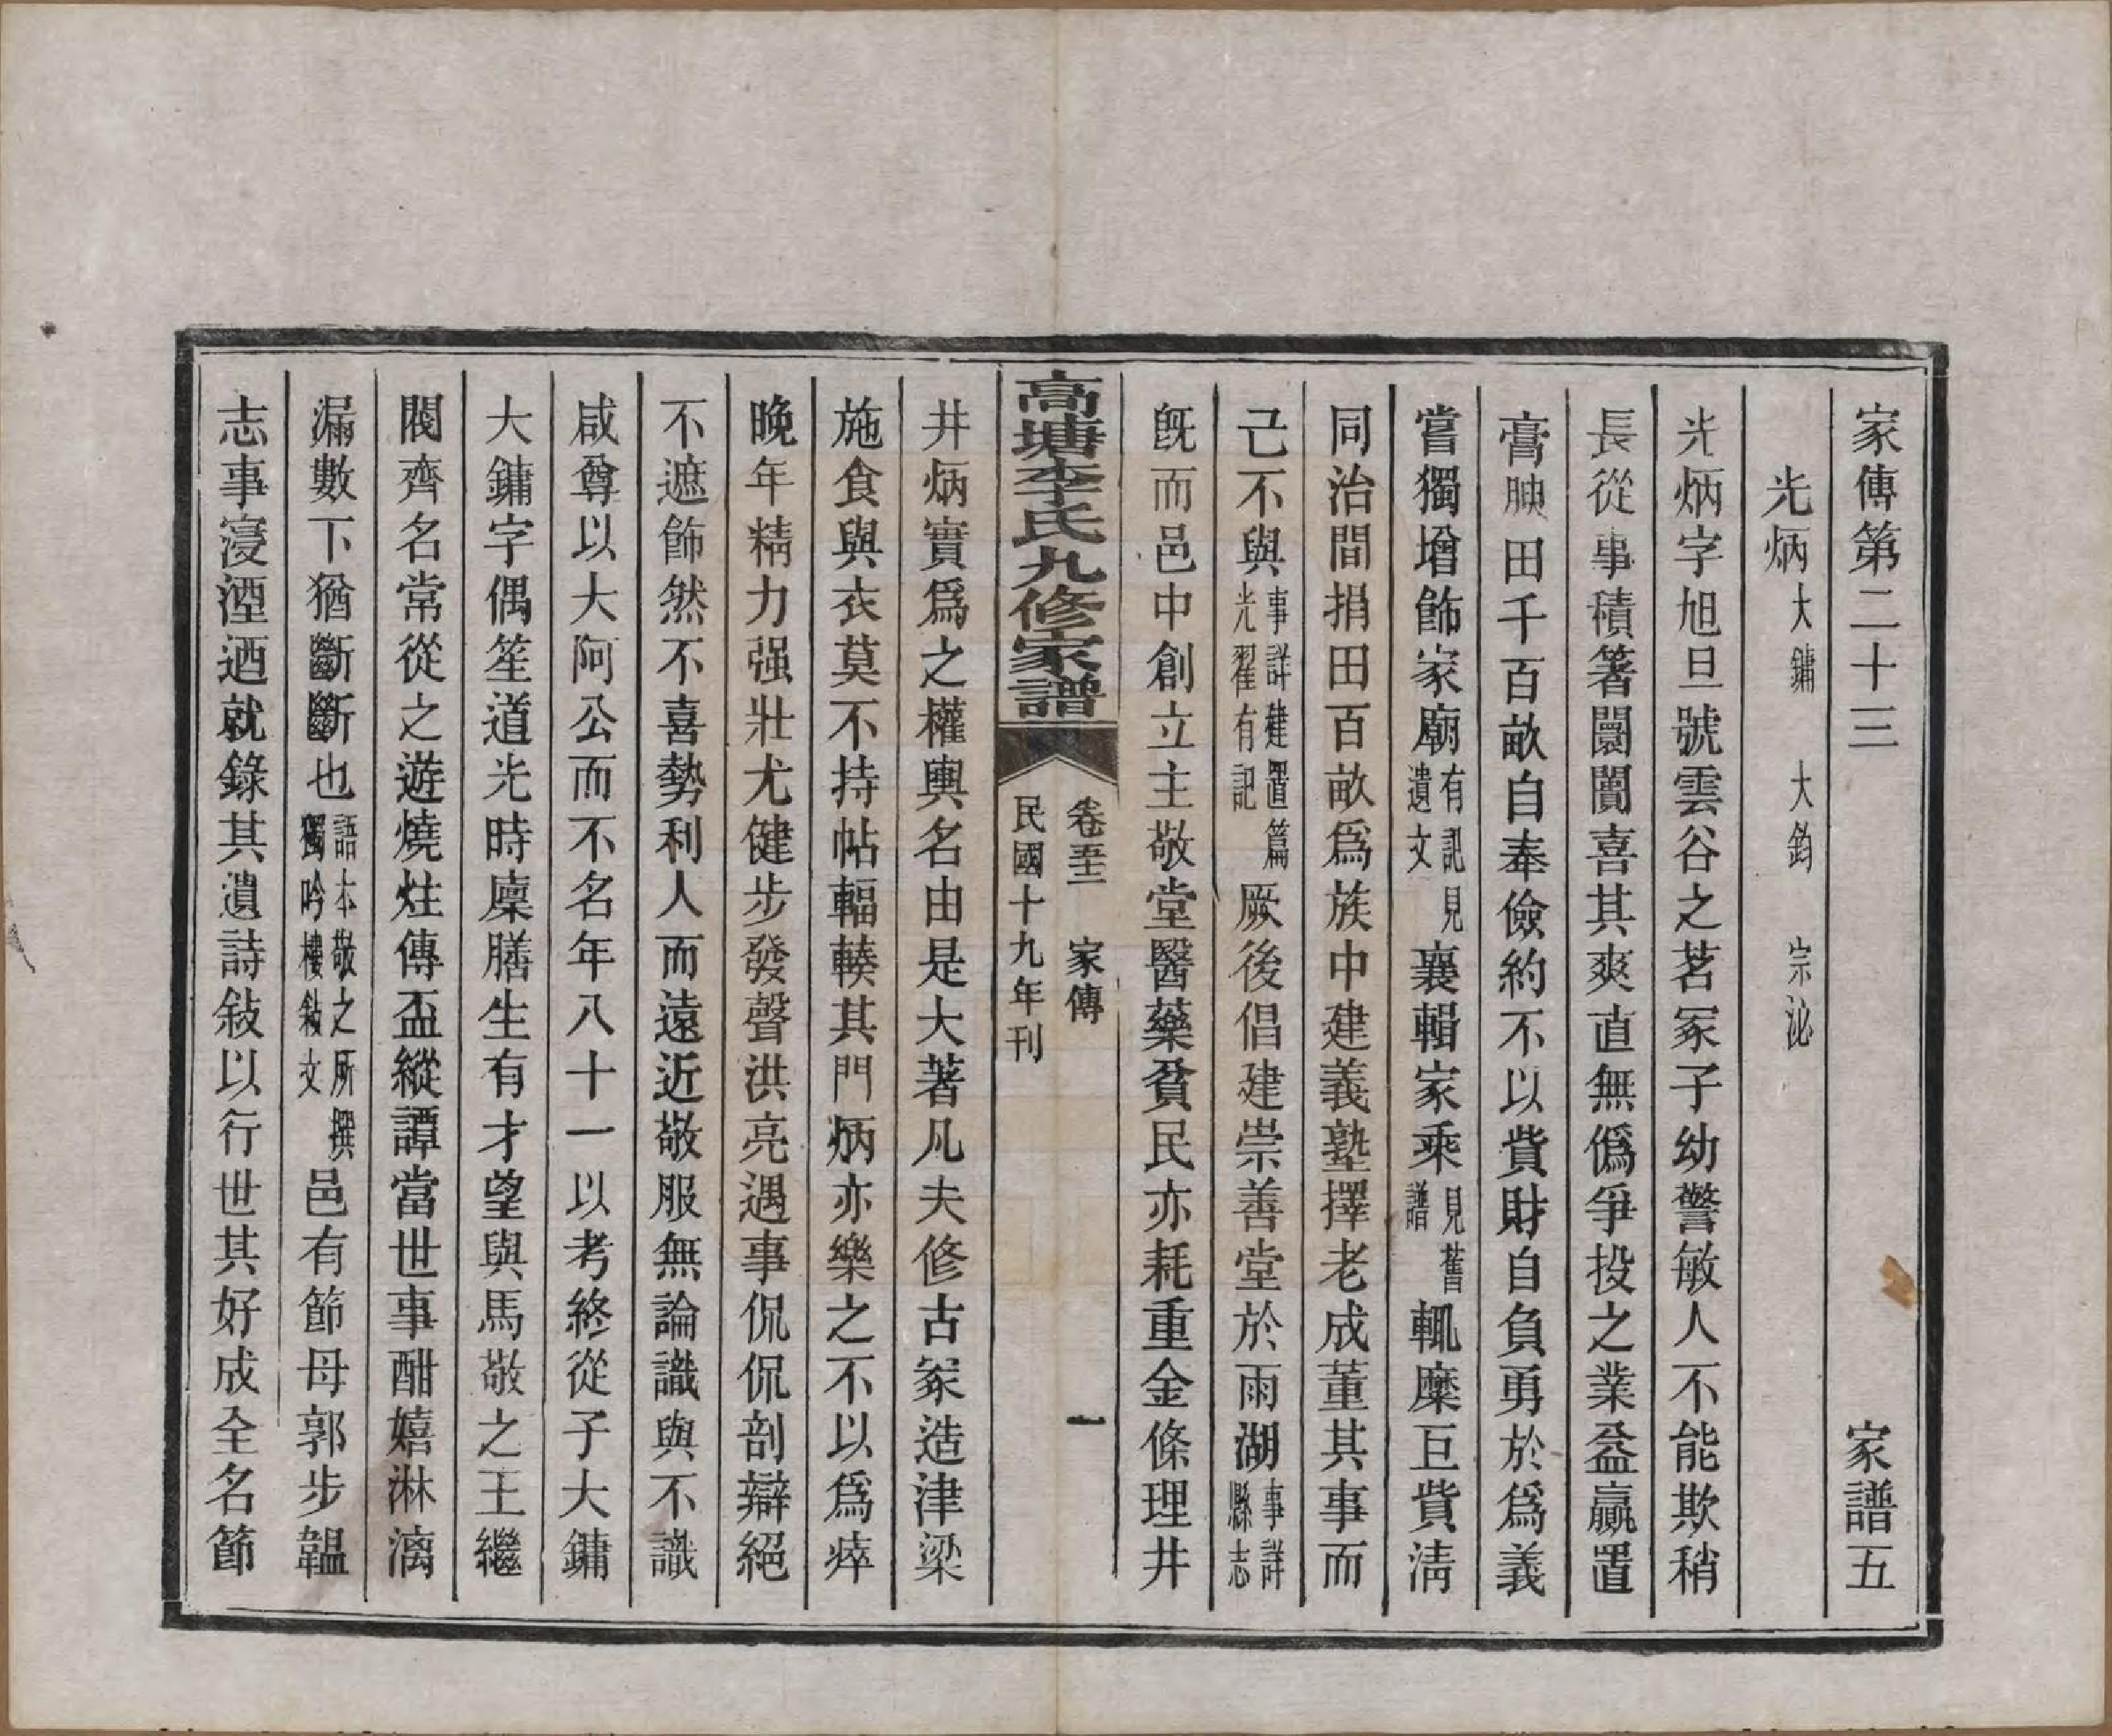 家傳第二十三 家譜五
光炳 大鏞 大鈞 宗泌
光炳字旭旦號雲谷之茗冢子幼警敏人不能欺稍
長從事積箸闤闠喜其爽直無僞爭投之業益贏置
膏腴田千百畝自奉儉約不以貲財自負勇於爲義
嘗獨增飾家廟有記見遺文襄輯家乘見舊譜輒糜巨貲淸
同治間捐田百畝爲族中建義塾擇老成董其事而
己不與事詳建置篇光翟有記厥後倡建崇善堂於雨湖事詳縣志
旣而邑中創立主敬堂醫藥貧民亦耗重金條理井
高塘李氏九修家譜 卷五十二 家傳 一 民國十九年刊
井炳實爲之權輿名由是大著凡夫修古冢造津梁
施食與衣莫不持帖輻輳其門炳亦樂之不以爲瘁
晚年精力强壯尤健步發聲洪亮遇事侃侃剖辯絕
不遮飾然不喜勢利人而遠近敬服無論識與不識
咸尊以大阿公而不名年八十一以考終從子大鏞
大鏞字偶笙道光時廩膳生有才望與馬敬之王繼
閣齊名常從之遊燒炷傳盃縱譚當世事酣嬉淋漓
漏數下猶斷斷也語本敬之所撰獨吟樓敍文邑有節母郭步韞
志事寖湮迺就錄其遺詩敍以行世其好成全名節